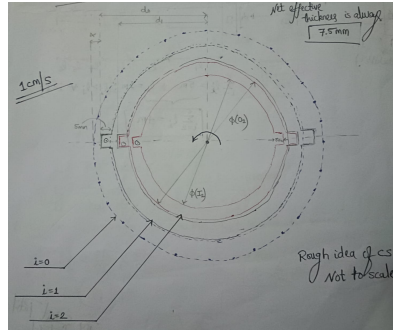 Net effective
thickness is always
7.5mm
1cm/s
5mm
d₀
d₁
λ
ϕ(O₂)
ϕ(I₂)
i=0
i=1
i=2
Rough idea of CS
Not to scale